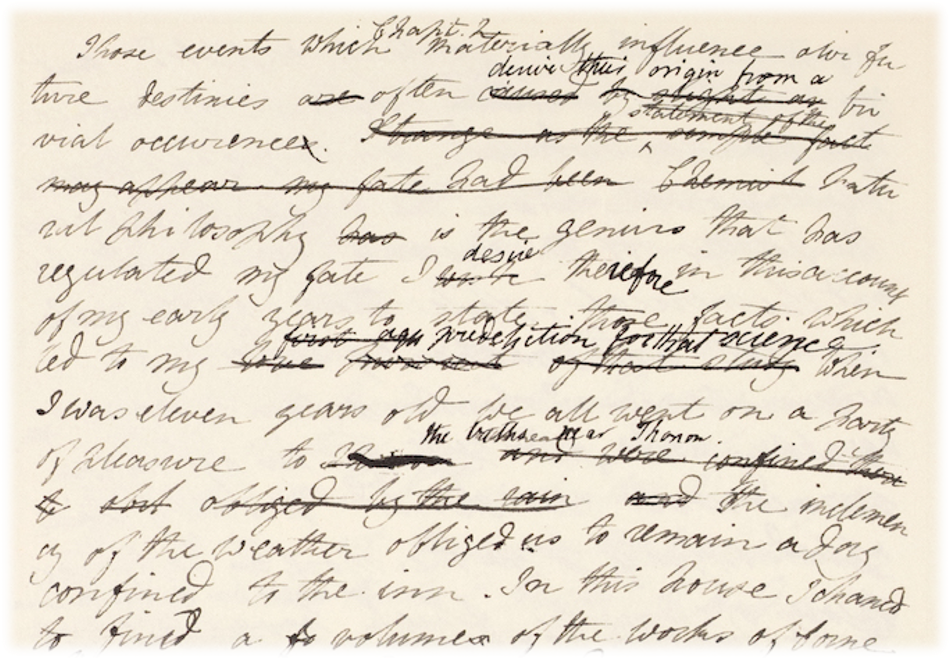 Chapt. 2
Those events which materially influence our fu
derive their origin from a
ture destinies are often caused by slight or tri
statement of the
vial occurrences. Strange as the simple fact
may appear my fate had been Chemist natu
ral philosophy has is the genius that has
desire
regulated my fate I therefore in this account
of my early years to state those facts which
predeliction for that science
led to my love of that study When
I was eleven years old we all went on a party
the baths near Thonon
of pleasure to and were confined there
& obt obliged by the rain and the inclemen
cy of the weather obliged us to remain a day
confined to the inn. In this house I chanced
to find a volume of the works of Corne